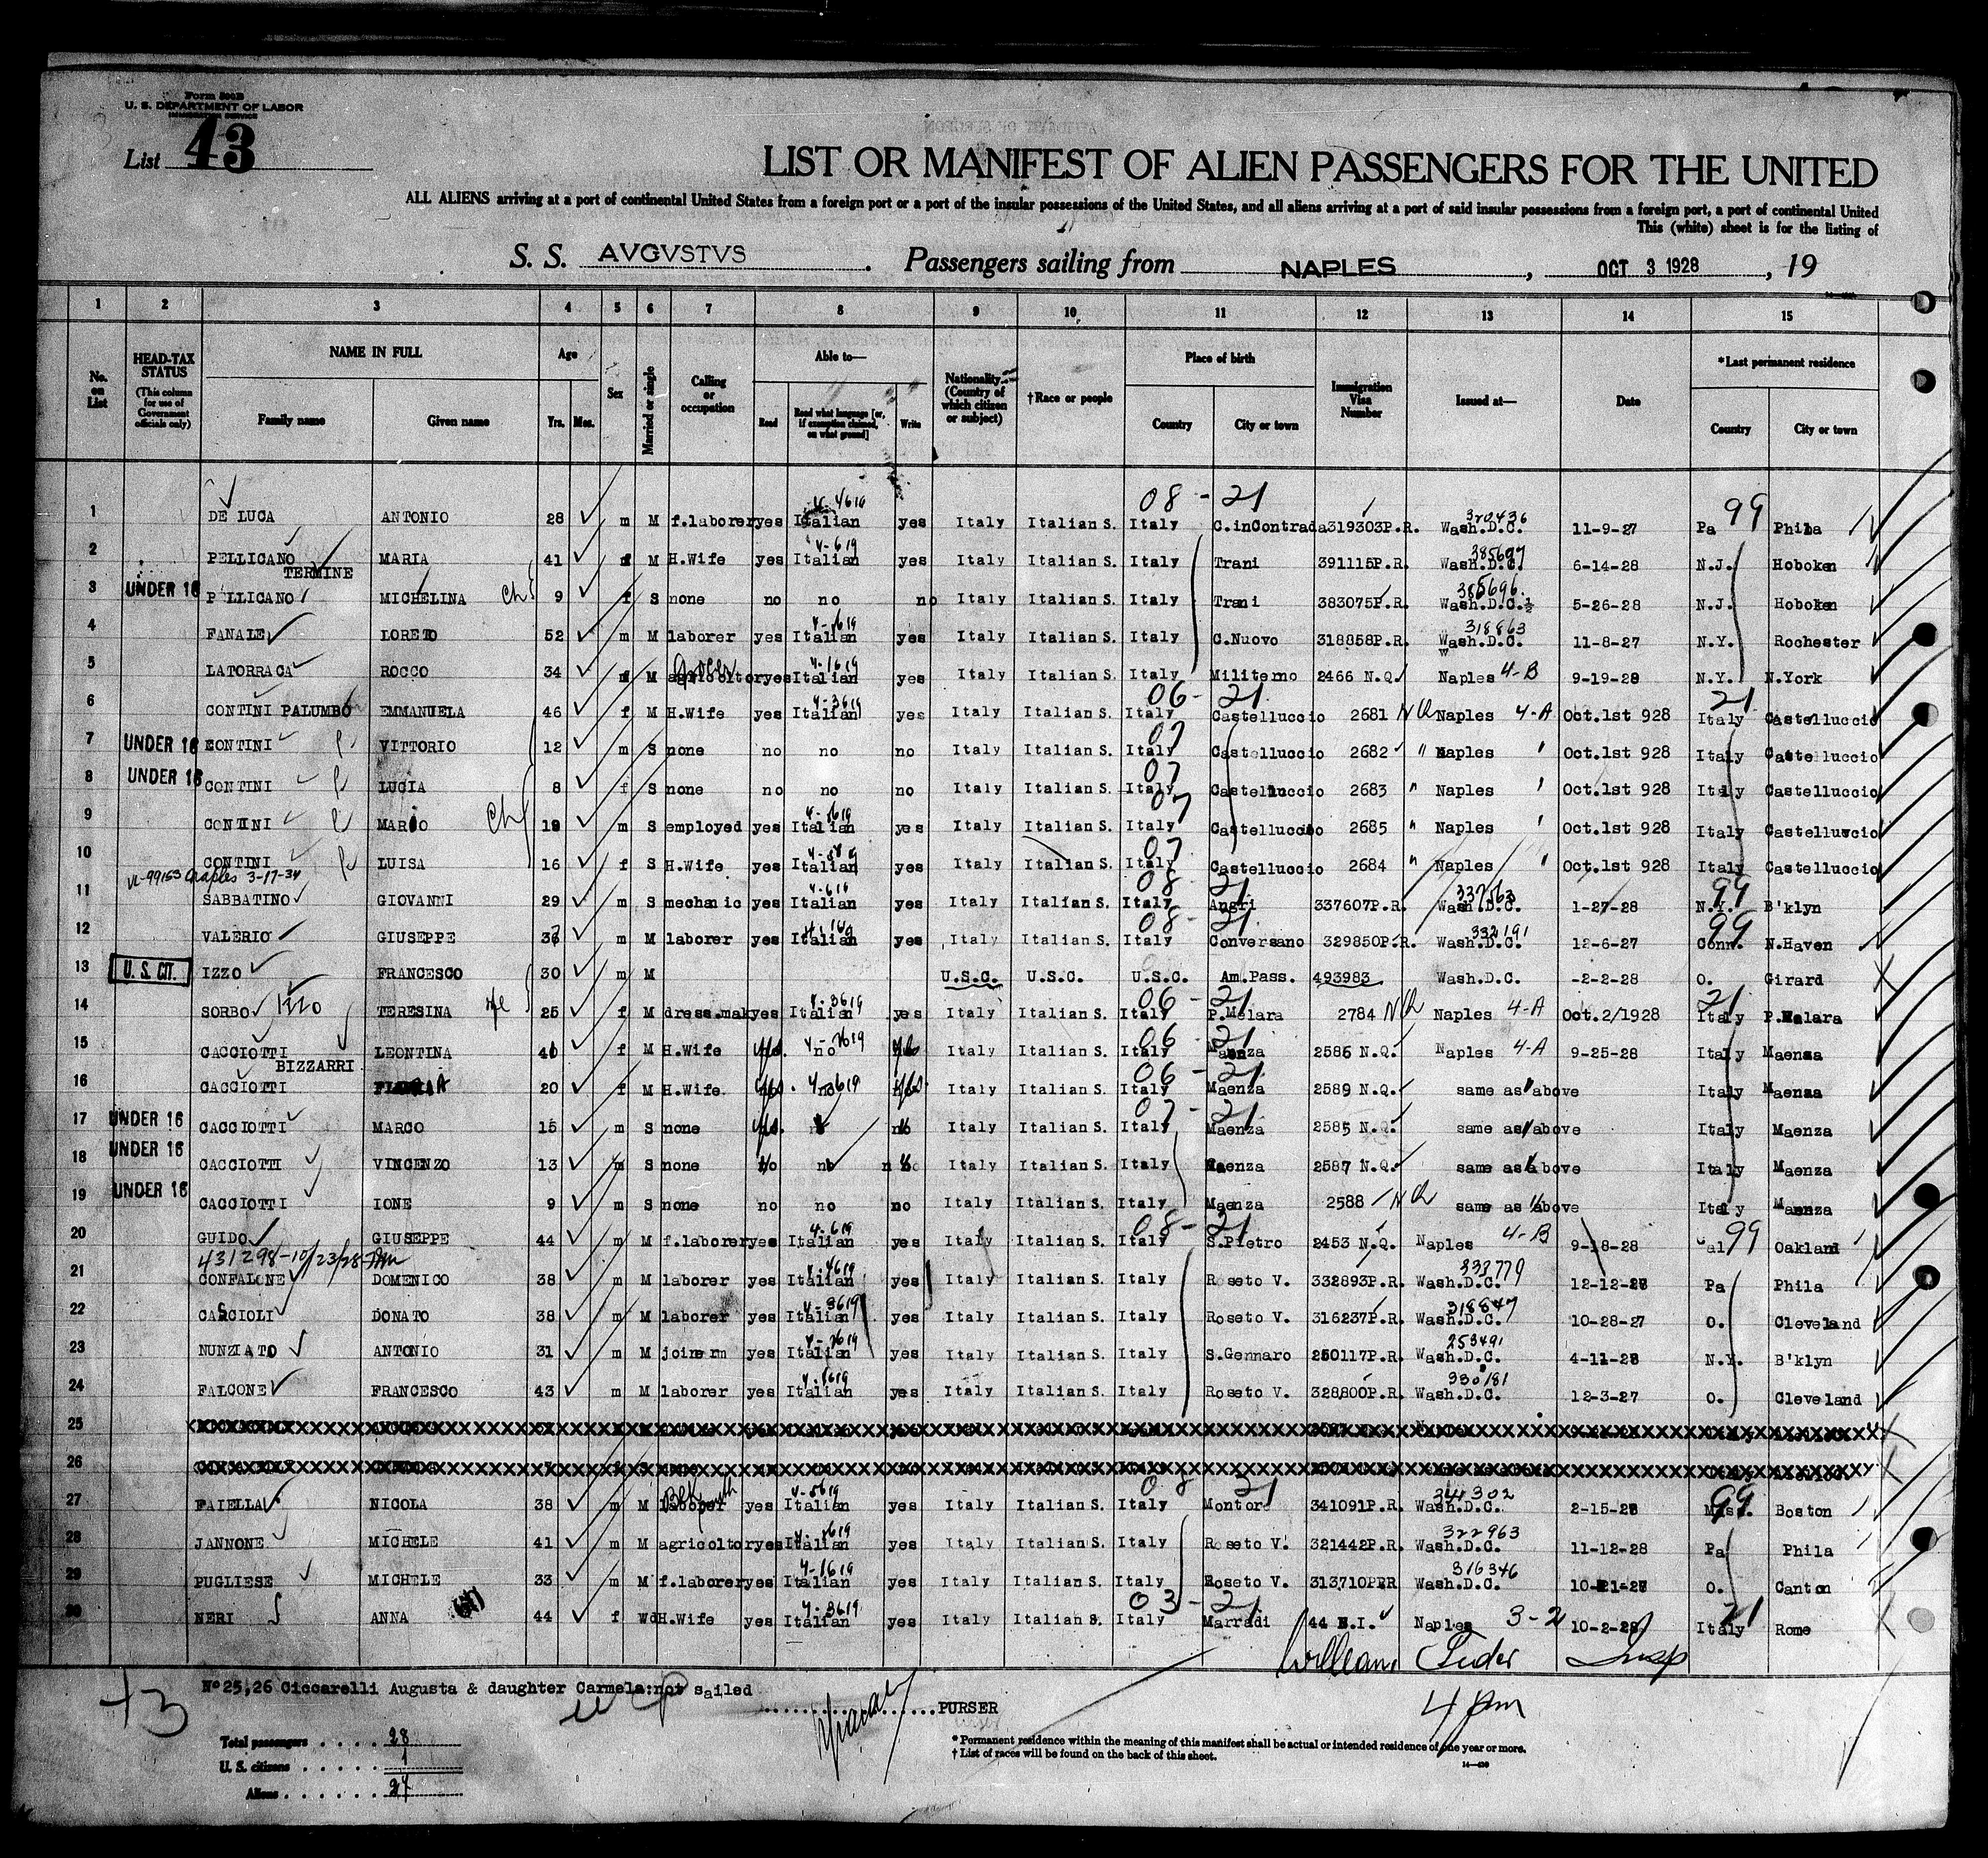 Form 500B
U. S. DEPARTMENT OF LABOR
IMMIGRATION SERVICE
List 43
LIST OR MANIFEST OF ALIEN PASSENGERS FOR THE UNITED
ALL ALIENS arriving at a port of continental United States from a foreign port or a port of the insular possessions of the United States, and all aliens arriving at a port of said insular possessions from a foreign port, a port of continental United
This (white) sheet is for the listing of
S. S. AVGVSTVS . Passengers sailing from NAPLES , OCT 3 1928 , 19
1 2 3 4 5 6 7 8 9 10 11 12 13 14 15
No. on List
HEAD-TAX STATUS (This column for use of Government officials only)
NAME IN FULL Family name Given name
Age Yrs. Mos.
Sex
Married or single
Calling or occupation
Able to— Read Read what language [or, if exemption claimed, on what ground] Write
Nationality (Country of which citizen or subject)
†Race or people
Place of birth Country City or town
Immigration Visa Number
Issued at—
Date
*Last permanent residence Country City or town
08 - 21 99
1 DE LUCA ANTONIO 28 m M f.laborer yes Italian yes Italy Italian S. Italy C.inContrada 319303P.R. 320436 Wash.D.C. 11-9-27 Pa Phila
2 PELLICANO TERMINE MARIA 41 f M H.Wife yes Italian yes Italy Italian S. Italy Trani 391115P.R. 385697 Wash.D.C. 6-14-28 N.J. Hoboken
3 UNDER 16 PELLICANO MICHELINA Ch 9 f S none no no no Italy Italian S. Italy Trani 383075P.R. 385696 Wash.D.C. 5-26-28 N.J. Hoboken
4 FANALE LORETO 52 m M laborer yes Italian yes Italy Italian S. Italy C.Nuovo 318858P.R. 318863 Wash.D.C. 11-8-27 N.Y. Rochester
5 LATORRACA ROCCO 34 M agricoltor yes Italian yes Italy Italian S. Italy Militerno 2466 N.Q. Naples 4-B 9-19-28 N.Y. N.York
06 - 21 21
6 CONTINI PALUMBO EMMANUELA 46 f M H.Wife yes Italian yes Italy Italian S. Italy Castelluccio 2681 NQ Naples 4-A Oct.1st 928 Italy Castelluccio
7 UNDER 16 CONTINI VITTORIO 12 m S none no no no Italy Italian S. Italy 07 Castelluccio 2682 " Naples ' Oct.1st 928 Italy Castelluccio
8 UNDER 16 CONTINI LUCIA 8 f S none no no no Italy Italian S. Italy 07 Castelluccio 2683 " Naples ' Oct.1st 928 Italy Castelluccio
9 CONTINI MARIO Ch 19 m S employed yes Italian yes Italy Italian S. Italy 07 Castelluccio 2685 " Naples ' Oct.1st 928 Italy Castelluccio
10 CONTINI LUISA 16 f S H.Wife yes Italian yes Italy Italian S. Italy 07 Castelluccio 2684 " Naples ' Oct.1st 928 Italy Castelluccio
3-17-34 08 - 21 99
11 SABBATINO GIOVANNI 29 m S mechanic yes Italian yes Italy Italian S. Italy Angri 337607P.R. Wash.D.C. 1-27-28 N.Y. B'klyn
08 - 21 99
12 VALERIO GIUSEPPE m M laborer yes Italian yes Italy Italian S. Italy Conversano 329850P.R. 332191 Wash.D.C. 12-6-27 Conn. N.Haven
13 U. S. CIT. IZZO FRANCESCO 30 m M U.S.C. U.S.C. U.S.C. Am.Pass. 493983 Wash.D.C. -2-2-28 O. Girard
06 - 21 21
14 SORBO Izzo TERESINA 25 f M dress.mak yes Italian yes Italy Italian S. Italy P.Melara 2784 NQ Naples 4-A Oct.2/1928 Italy P.Melara
06 - 21
15 CACCIOTTI BIZZARRI LEONTINA f M H.Wife Italy Italian S. Italy Maenza 2586 N.Q. Naples 4-A 9-25-28 Italy Maenza
06 - 21
16 CACCIOTTI 20 f M H.Wife Italy Italian S. Italy Maenza 2589 N.Q. same as above Italy Maenza
07 - 21
17 UNDER 16 CACCIOTTI MARCO 15 m S none Italy Italian S. Italy Maenza 2585 N.Q. same as above Italy Maenza
18 UNDER 16 CACCIOTTI VINCENZO 13 m S none no Italy Italian S. Italy Maenza 2587 N.Q. same as above Italy Maenza
19 UNDER 16 CACCIOTTI IONE 9 m S none no no no Italy Italian S. Italy Maenza 2588 NQ same as above Italy Maenza
08 - 21 99
20 GUIDO GIUSEPPE 44 m M f.laborer yes Italian yes Italy Italian S. Italy S.Pietro 2453 N.Q. Naples 4-B 9-18-28 Cal Oakland
431298-10/23/28
21 CONFALONE DOMENICO 38 m M laborer yes Italian yes Italy Italian S. Italy Roseto V. 332893P.R. 333779 Wash.D.C. 12-12-28 Pa Phila
22 CASCIOLI DONATO 38 m M laborer yes Italian yes Italy Italian S. Italy Roseto V. 316237P.R. 318847 Wash.D.C. 10-28-27 O. Cleveland
23 NUNZIATO ANTONIO 31 m M joinerm yes Italian yes Italy Italian S. Italy S.Gennaro 250117P.R. 253491 Wash.D.C. 4-11-28 N.Y. B'klyn
24 FALCONE FRANCESCO 43 m M laborer yes Italian yes Italy Italian S. Italy Roseto V. 328800P.R. 330181 Wash.D.C. 12-3-27 O. Cleveland
25
26
08 21 99
27 FAIELLA NICOLA 38 m M yes Italian yes Italy Italian S. Italy Montoro 341091P.R. 344302 Wash.D.C. 2-15-28 Mass. Boston
28 JANNONE MICHELE 41 m M agricoltor yes Italian yes Italy Italian S. Italy Roseto V. 321442P.R. 322963 Wash.D.C. 11-12-28 Pa Phila
29 PUGLIESE MICHELE 33 m M f.laborer yes Italian yes Italy Italian S. Italy Roseto V. 313710PER 316346 Wash.D.C. O. Canton
03 - 21 21
30 NERI ANNA 44 f Wd H.Wife yes Italian yes Italy Italian S. Italy Marradi 44 N.I. Naples 3-2 10-2-28 Italy Rome
No 25,26 Ciccarelli Augusta & daughter Carmela:not sailed
PURSER
4 pm
Total passengers 28
U. S. citizens 1
Aliens 27
* Permanent residence within the meaning of this manifest shall be actual or intended residence of one year or more.
† List of races will be found on the back of this sheet.